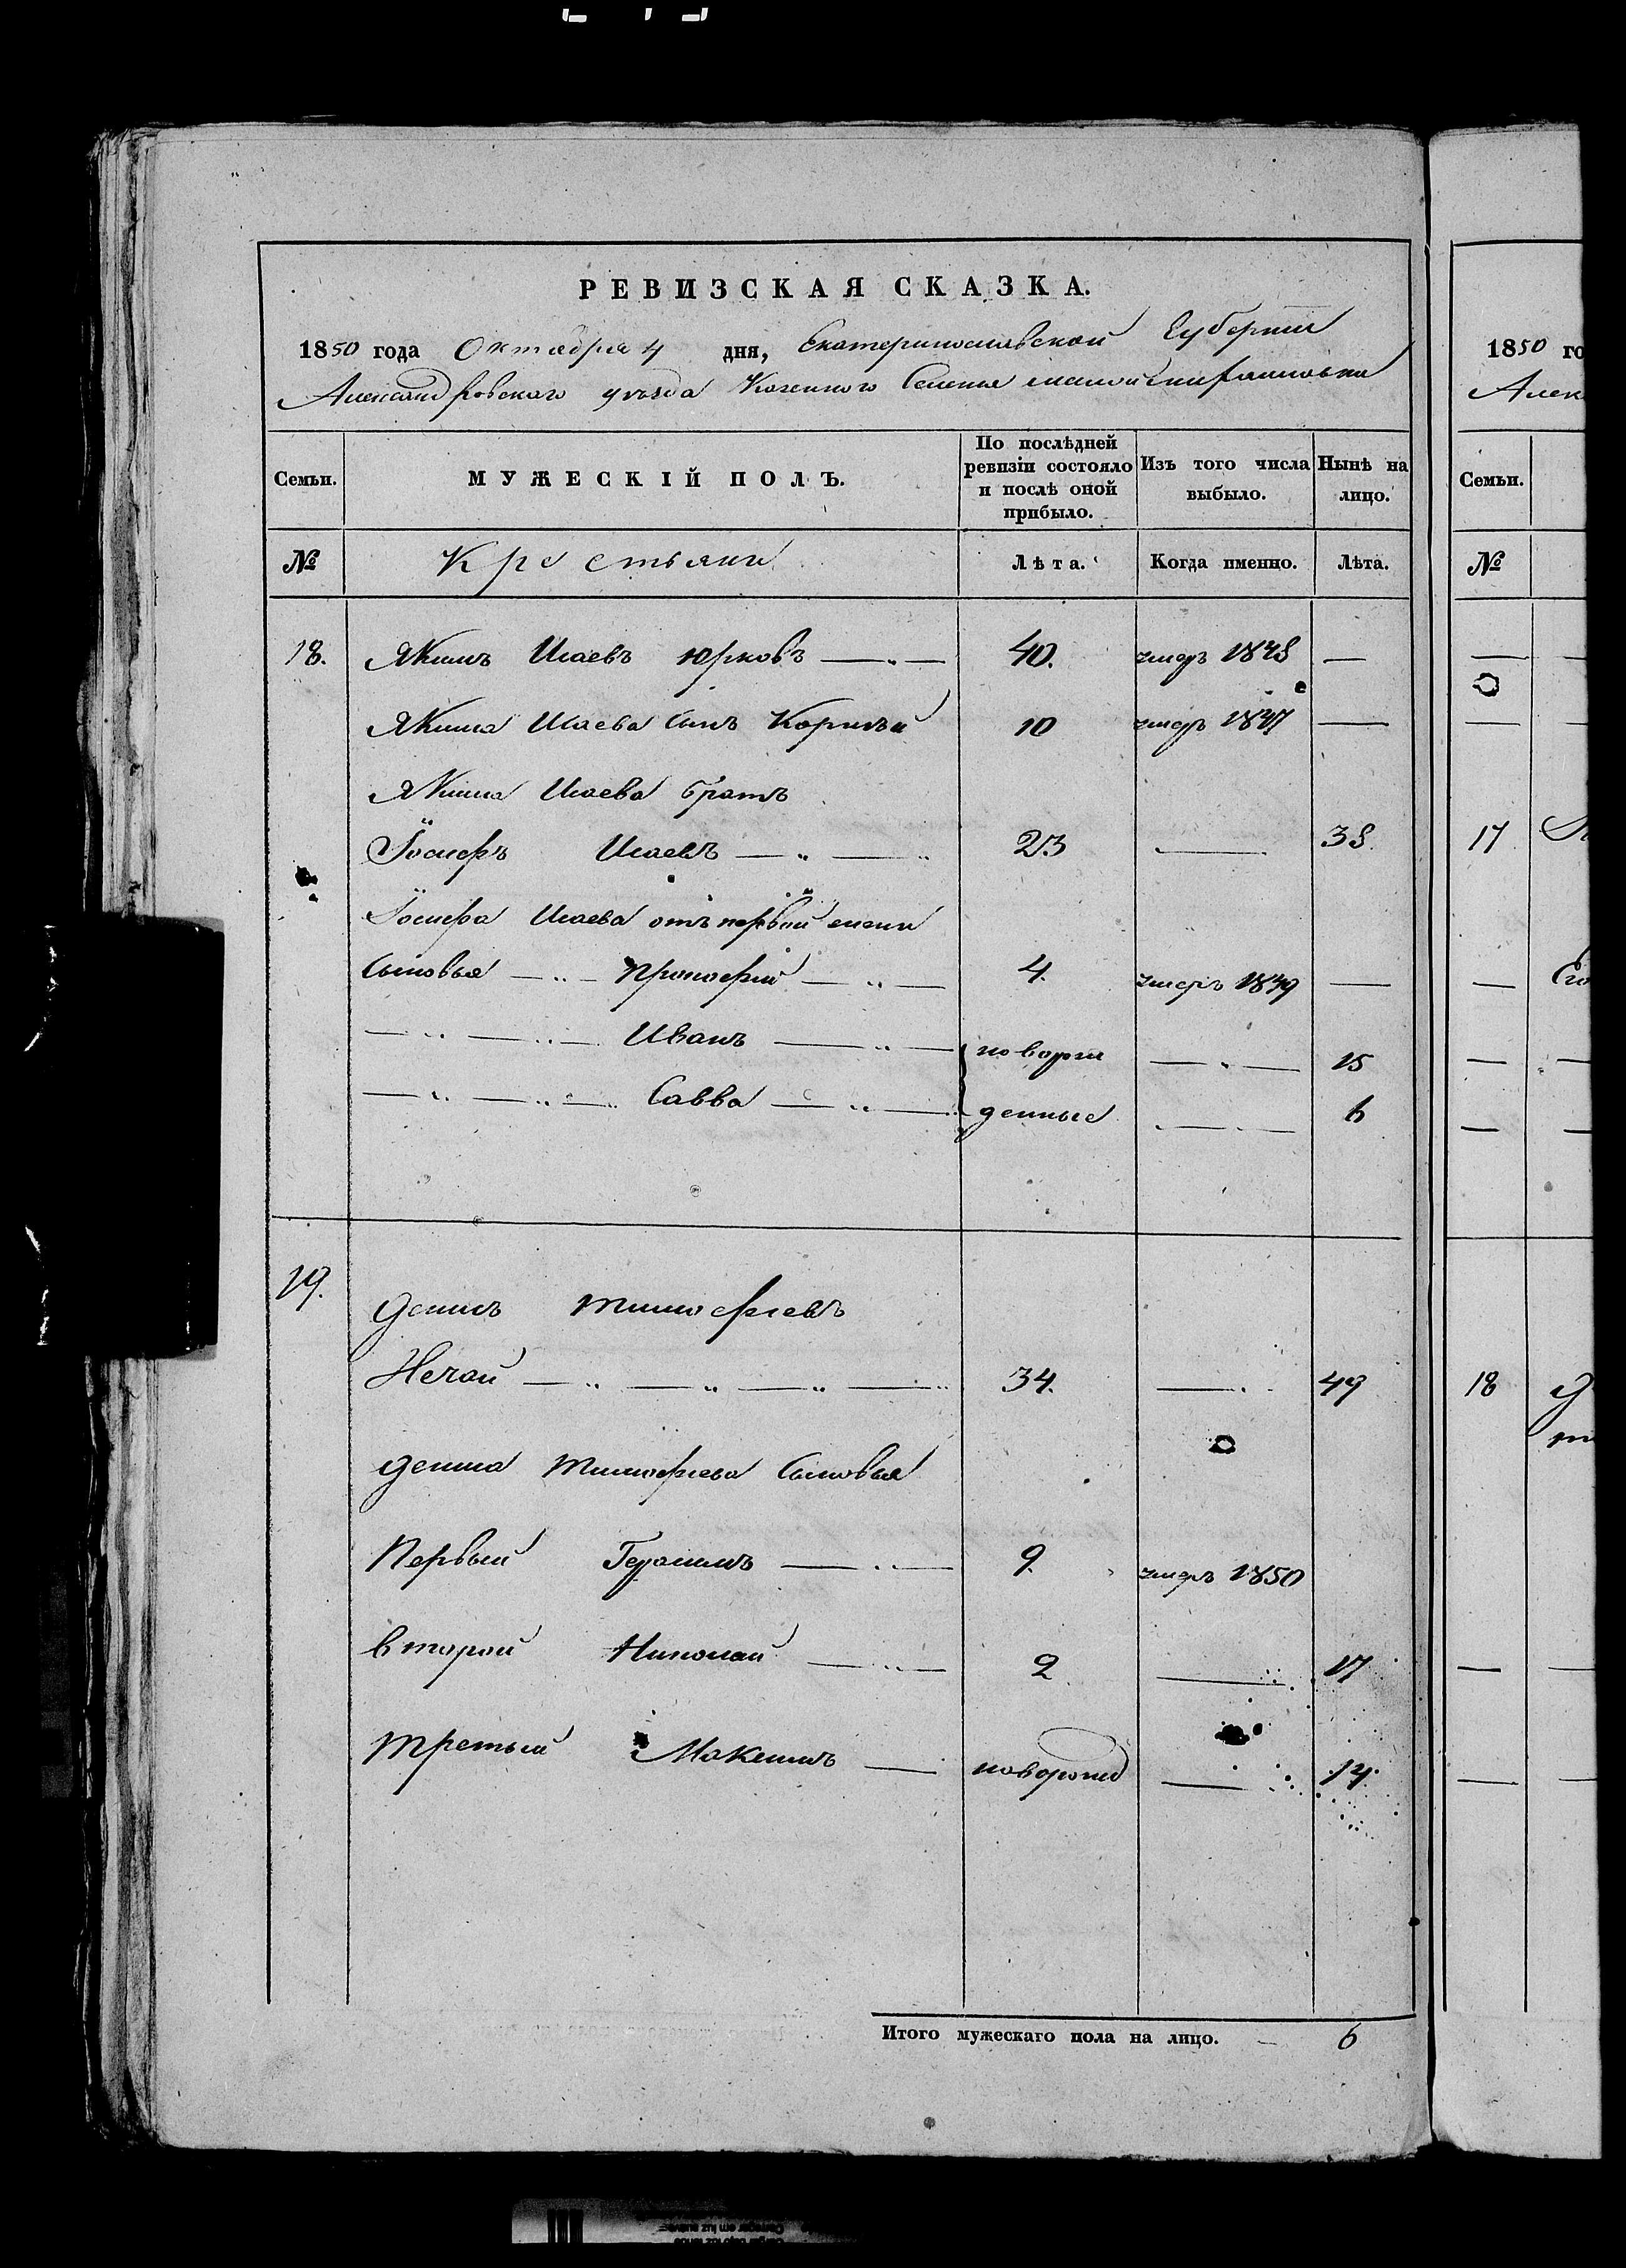 РЕВИЗСКАЯ СКАЗКА.
1850 года Октября 4 дня, Екатеринославской Губернии
Александровского уѣзда Казенного Селения
Семьи.
МУЖЕСКІЙ ПОЛЪ.
По послѣдней ревизіи состояло и послѣ оной прибыло.
Изъ того числа выбыло.
Нынѣ на лицо.
№ Крестьяни Лѣта. Когда именно. Лѣта.
18. Якимъ Исаевъ Юрковъ 40. умеръ 1848 —
Якима Исаева Сынъ Корнѣй 10 умеръ 1847 —
Якима Исаева братъ
Іосифъ Исаевъ 23 — 38.
Іосифа Исаева отъ первой жены
Сыновья Прокофій 4. умеръ 1849 —
Иванъ новорож — 15
Савва денные — 6
19. Денисъ Тимофеевъ
Нечай 34. — 49
Дениса Тимофеева Сыновья
Первый Герасимъ 9. умеръ 1850
второй Николай 2 — 17
третьий Максимъ новорожд — 14.
Итого мужескаго пола на лицо. — 6
1850 го
Алек
Семьи.
№
17
18